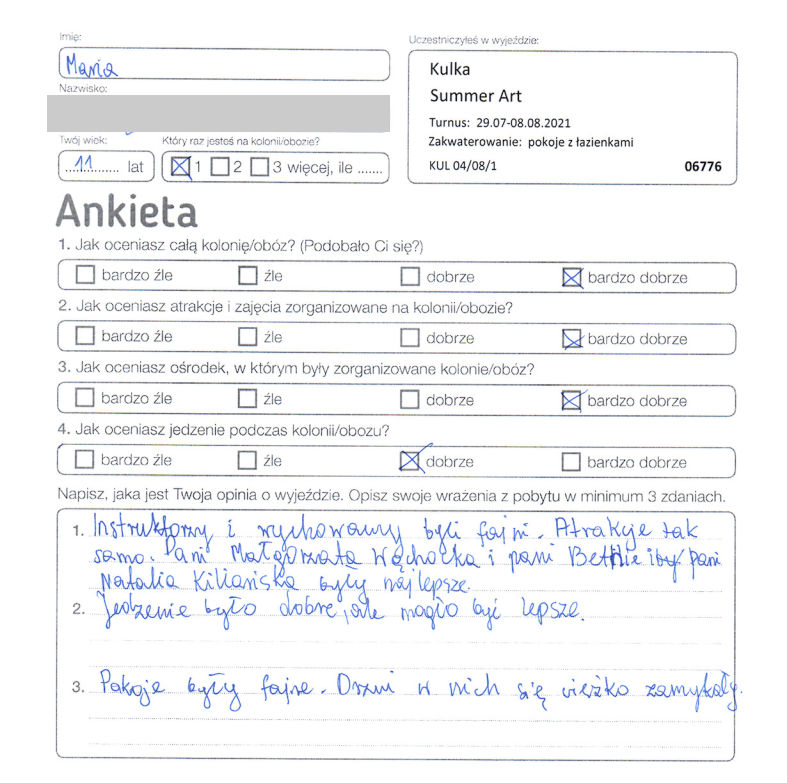 Imię:
Maria
Nazwisko:
Twój wiek:
11 lat
Który raz jesteś na kolonii/obozie?
1 2 3 więcej, ile .......
Uczestniczyłeś w wyjeździe:
Kulka
Summer Art
Turnus: 29.07-08.08.2021
Zakwaterowanie: pokoje z łazienkami
KUL 04/08/1 06776
Ankieta
1. Jak oceniasz całą kolonię/obóz? (Podobało Ci się?)
bardzo źle źle dobrze bardzo dobrze
2. Jak oceniasz atrakcje i zajęcia zorganizowane na kolonii/obozie?
bardzo źle źle dobrze bardzo dobrze
3. Jak oceniasz ośrodek, w którym były zorganizowane kolonie/obóz?
bardzo źle źle dobrze bardzo dobrze
4. Jak oceniasz jedzenie podczas kolonii/obozu?
bardzo źle źle dobrze bardzo dobrze
Napisz, jaka jest Twoja opinia o wyjeździe. Opisz swoje wrażenia z pobytu w minimum 3 zdaniach.
1. Instruktorzy i wychowawcy byli fajni. Atrakcje tak
samo. Pani Małgorzata Wąchocka i pani i pani
Natalia Kiliańska były najlepsze.
2. Jedzenie było dobre, ale mogło być lepsze.
3. Pokoje były fajne. Drzwi w nich się ciężko zamykały.